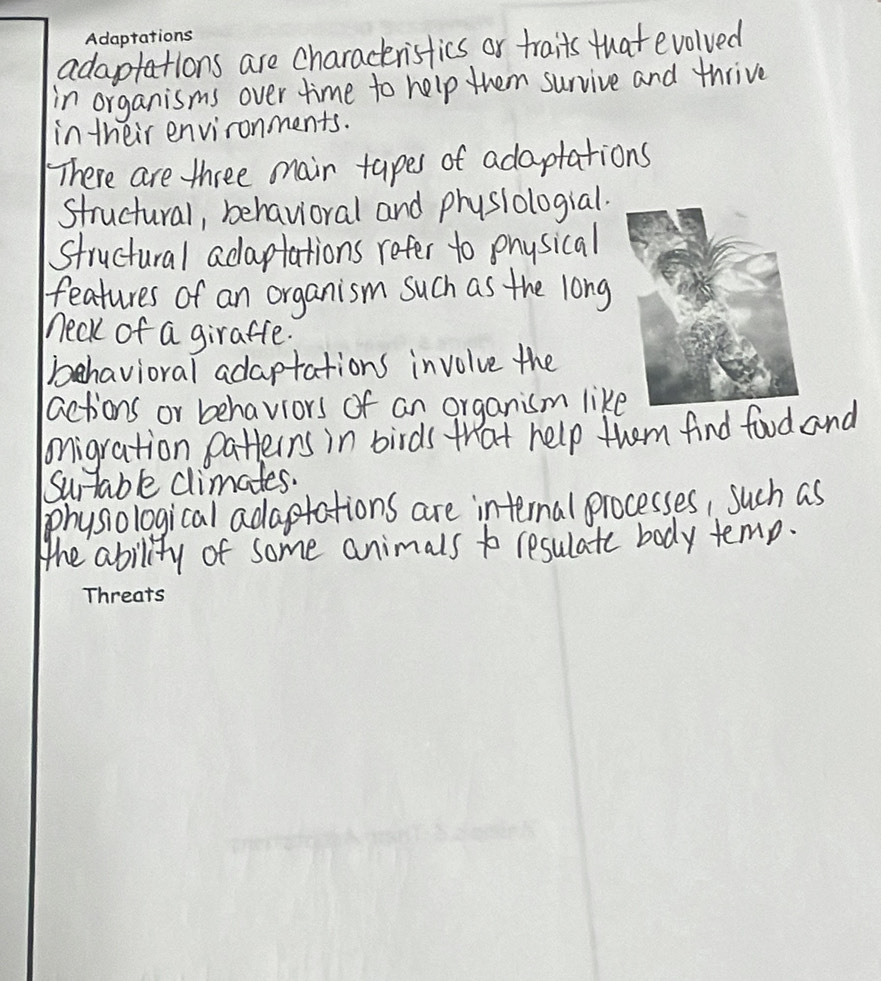 Adaptations
adaptations are characteristics or traits that evolved
in organisms over time to help them survive and thrive
in their environments.
There are three main types of adaptations
structural, behavioral and physiologial.
structural adaptations refer to physical
features of an organism such as the long
neck of a giraffe.
behavioral adaptations involve the
actions or behaviors of an organism like
migration patterns in birds that help them find food and
suitable climates.
physiological adaptations are internal processes, such as
the ability of some animals to regulate body temp.
Threats